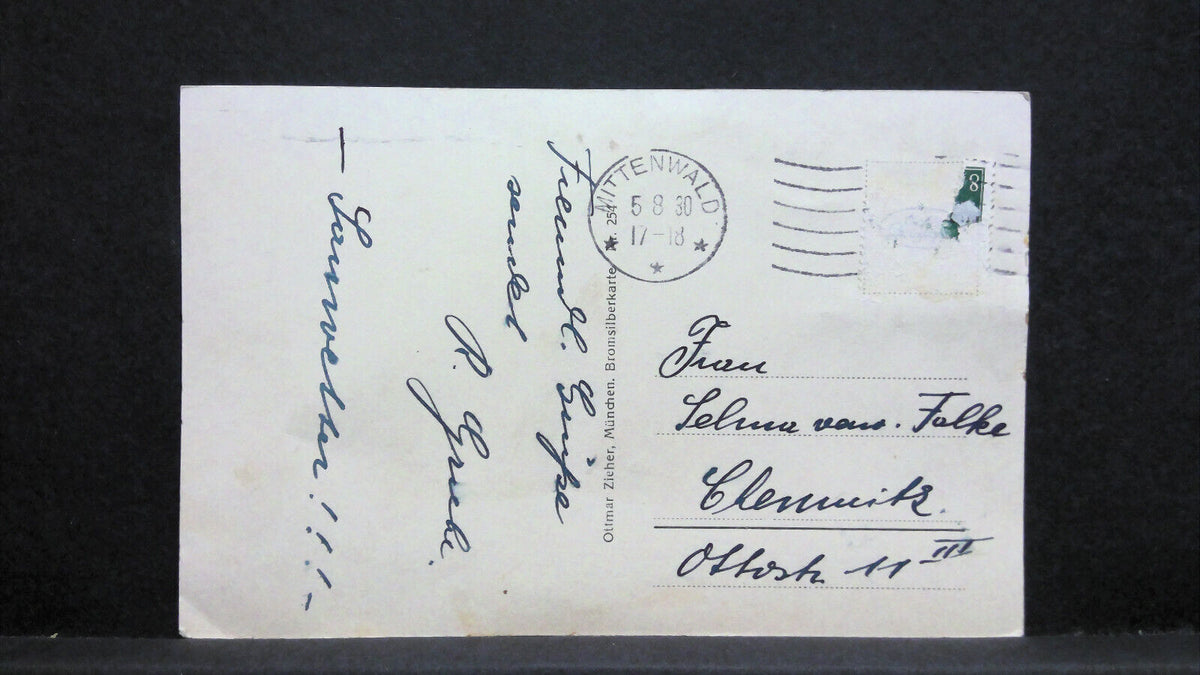 Freundl. Grüße
sendet
R. Griehl.
— Sauwetter!!!—
Ottmar Zieher, München. Bromsilberkarte Nr. 254
MITTENWALD
5 8 30
17-18
8
Frau
Selma verw. Falke
Chemnitz.
Ottostr. 11 III